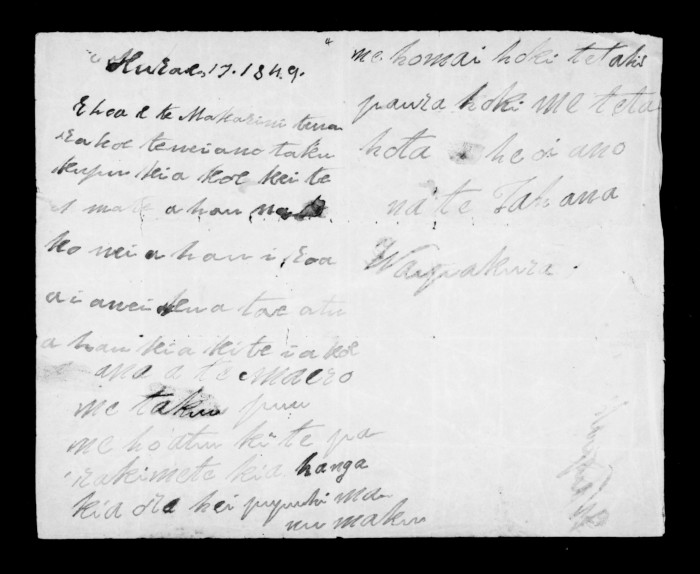 Hurae 17. 1849.
E hoa e te Makarini tena
ra koe tenei ano taku
kupu kia koe kei te
mate ahau
ko nei ahau i roa
ai a nei kua tae atu
ahau kia kite i a koe
ana a te maero
me taku puu
me hoatu ki te pa
rakimete kia hanga
kia ora hei pupuhi ma
nu maku
me homai hoki tetahi
paura hoki me teta
hota heoi ano
na te Tahana